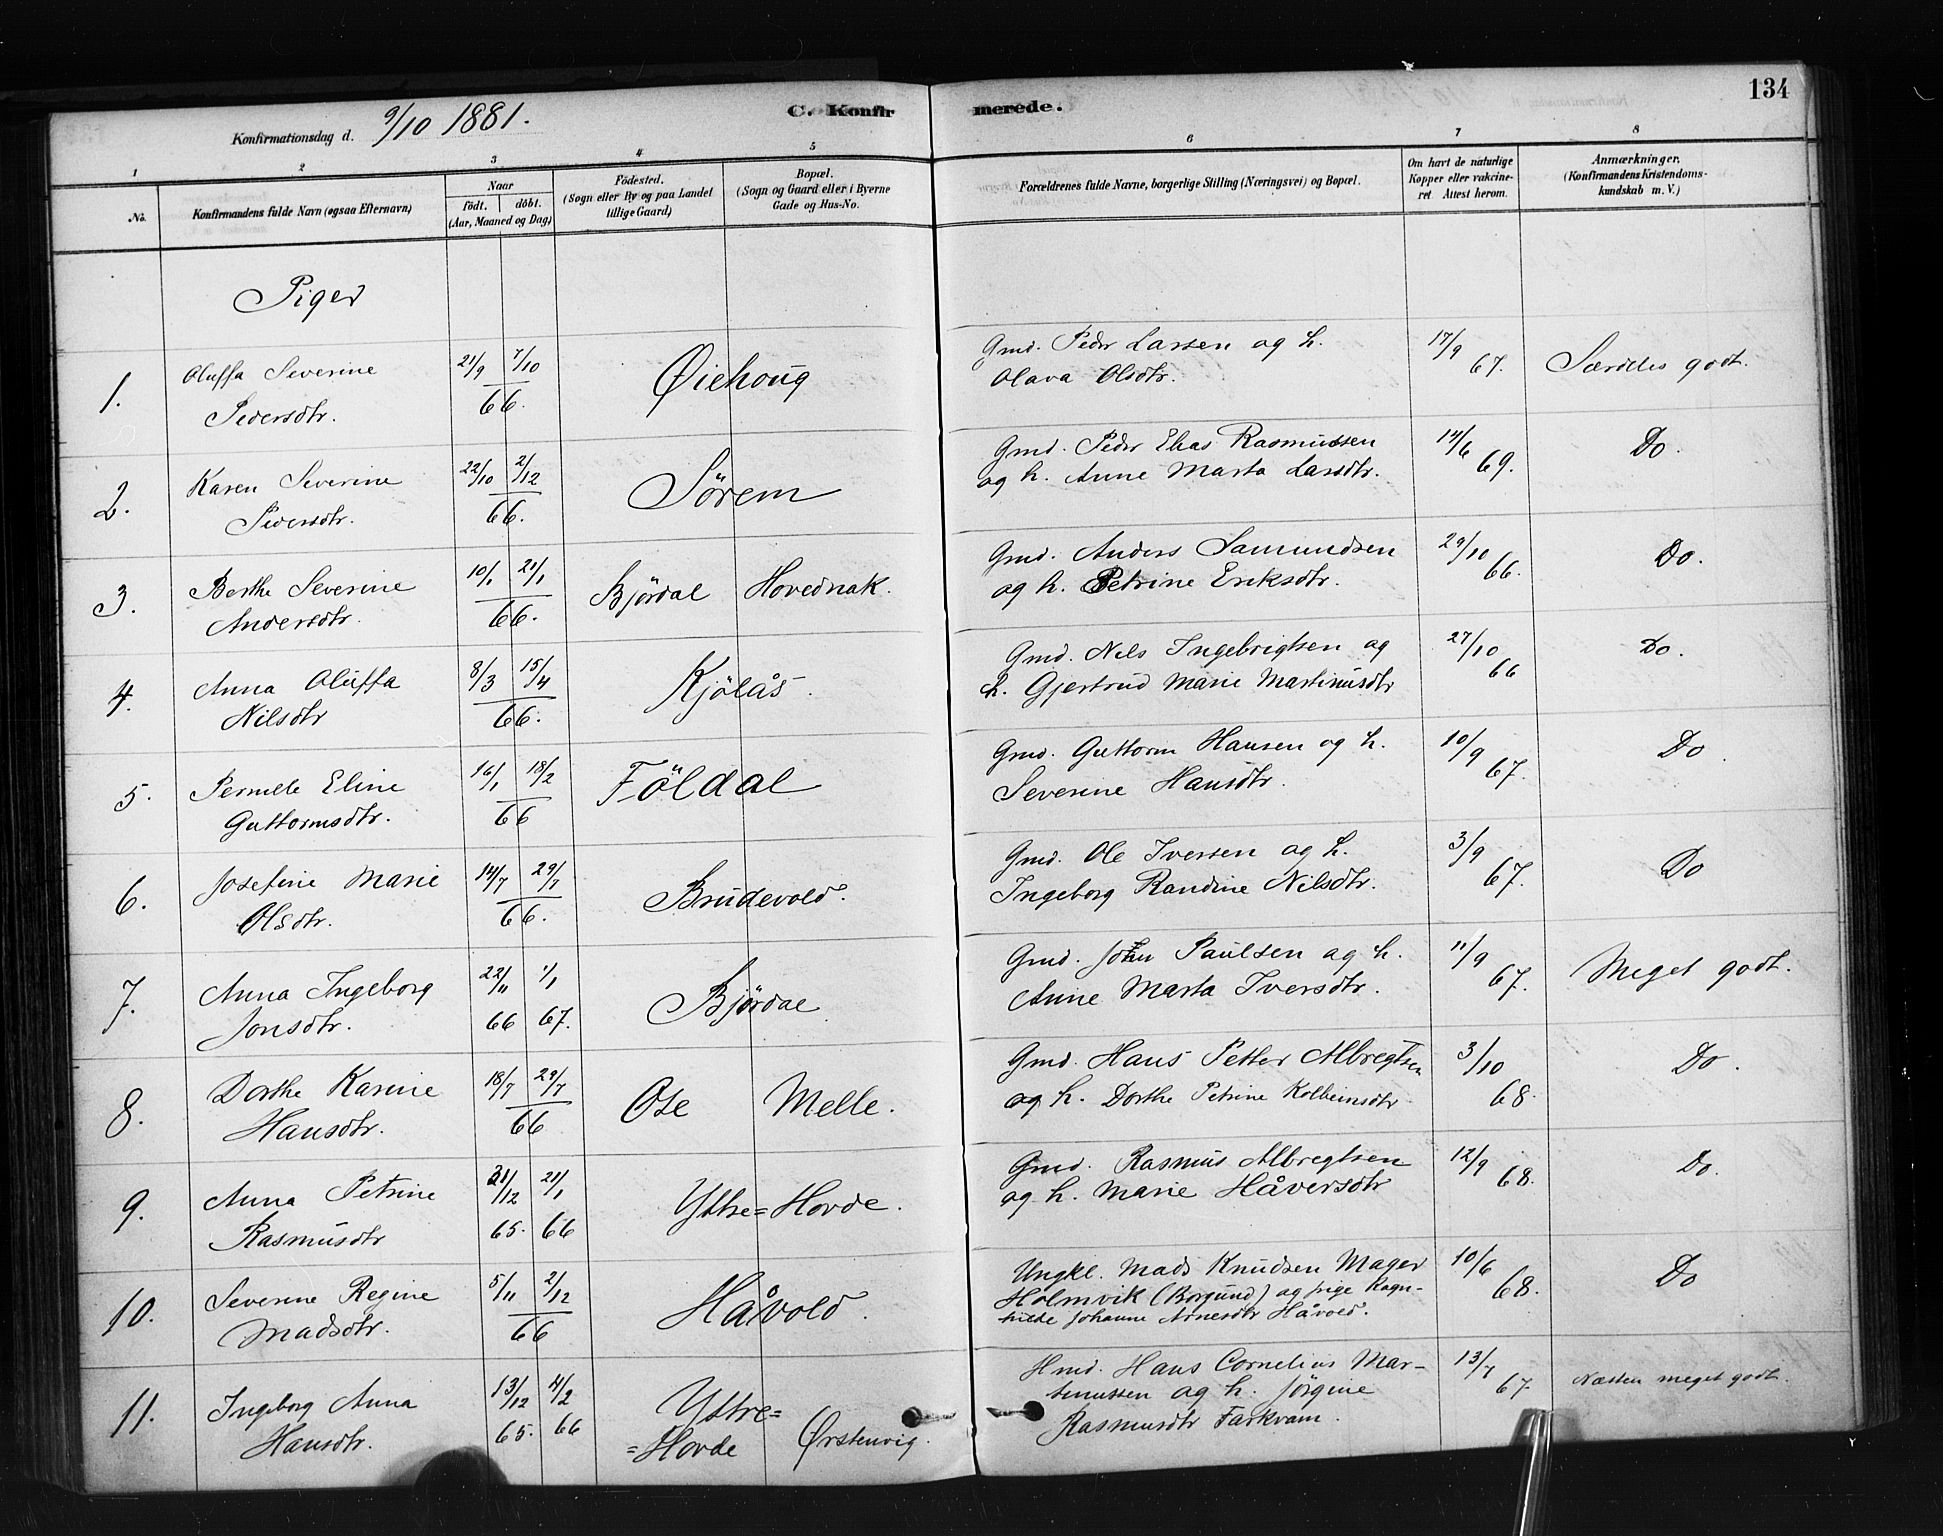 134
C. Konfirmerede.
Konfirmationsdag d. 9/10 1881.
1 2 3 4 5 6 7 8
No.
Konfirmandens fulde Navn (ogsaa Efternavn)
Naar
født. døbt.
(Aar, Maaned og Dag)
Födested.
(Sogn eller By og paa Landet
tillige Gaard)
Bopæl.
(Sogn og Gaard eller i Byerne
Gade og Hus-No.
Forældrenes fulde Navne, borgerlige Stilling (Næringsvei) og Bopæl.
Om havt de naturlige
Kopper eller vakcine-
ret Attest herom.
Anmærkninger.
(Konfirmandens Kristendoms-
kundskab m. V.)
Piger
1. Oluffa Severine
Pedersdtr.
21/9 7/10
66.
Øiehoug
Gmd. Peder Larsen og h.
Olava Olsdtr.
17/9 67.
Særdeles godt.
2. Karen Severine
Pedersdtr.
22/10 2/12
66.
Sörem
Gmd. Peder Elias Rasmussen
og h. Anne Marta Larsdtr.
14/6 69.
Do.
3. Berthe Severine
Andersdtr.
10/1 21/1
66.
Björdal Hovednak.
Gmd. Anders Samundsen
og h. Petrine Eriksdtr.
29/10 66.
Do.
4. Anna Oluffa
Nilsdtr
8/3 15/4
66.
Kjölås.
Gmd. Nils Ingebrigtsen og
h. Gjertrud Marie Martinusdtr
27/10 66
Do.
5. Pernelle Eline
Guttormsdtr.
16/1 18/2
66
Földal
Gmd. Guttorm Hansen og h.
Severine Hansdtr.
10/9 67.
Do
6. Josefine Marie
Olsdtr.
14/7 29/7
66.
Brudevold.
Gmd. Ole Iversen og h.
Ingeborg Randine Nilsdtr.
3/9 67.
Do
7. Anna Ingeborg
Jonsdtr.
22/11 1/1
66 67.
Björdal
Gmd. John Paulsen og h.
Anne Marta Iversdtr.
11/9 67.
Meget godt.
8. Dorthe Karine
Hansdtr.
18/7 29/7
66
Ose Melle.
Gmd. Hans Petter Albregtsen
og h. Dorthe Petrine Kolbeinsdtr
3/10 68.
Do.
9. Anna Petrine
Rasmusdtr
31/12 21/1
65. 66
Yttre=Hovde.
Gmd. Rasmus Albregtsen
og h. Marie Håversdtr
12/9 68.
Do.
10. Severine Regine
Madsdtr.
5/11 2/12
66
Håvold.
Ungkl. Mads Knudsen Mager
Holmvik (Borgund) og pige Ragn-
hilde Johanne Arnesdtr Håvold.
10/6 68.
Do
11. Ingeborg Anna
Hansdtr.
13/12 4/2
65. 66
Yttre=
=Hovde Ørstenvig.
Hmd. Hans Cornelius Mar-
tinussen og h. Jörgine
Rasmusdtr Farkvam.
13/7 67.
Næsten meget godt.